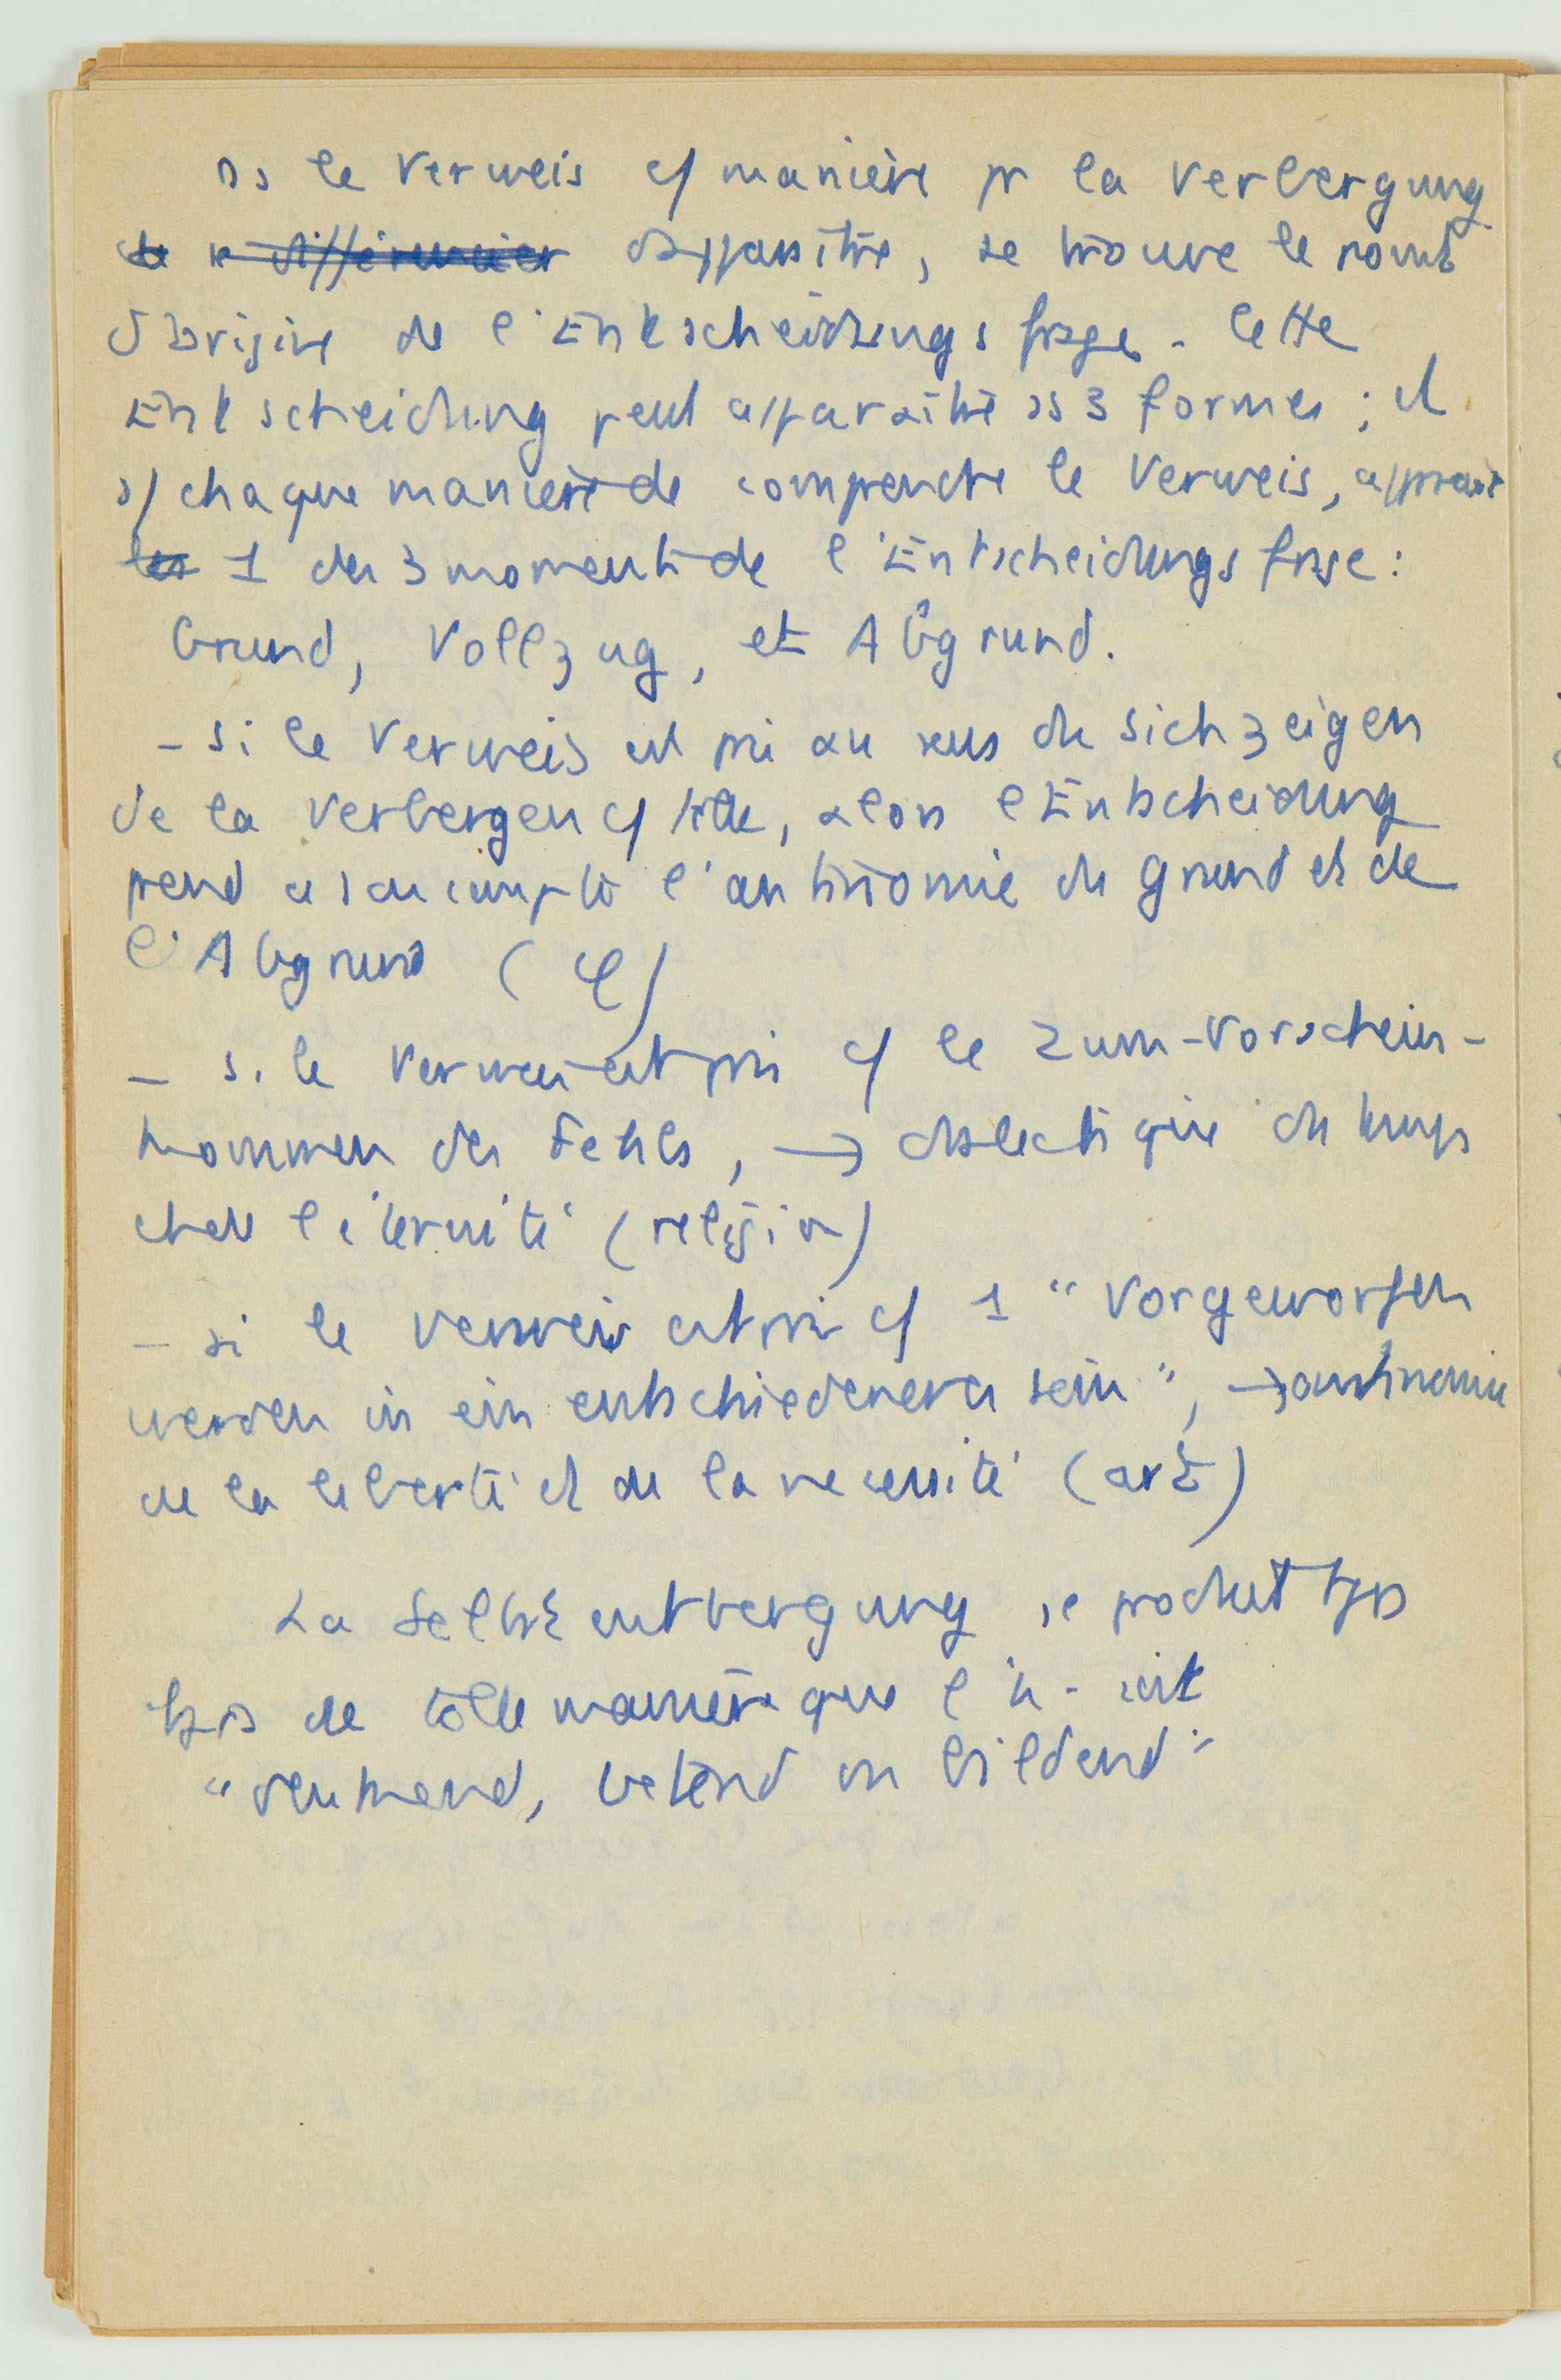 ds le Verweis c/ manière pr la Verbergung
de se différencier d'apparaître, se trouve le point
d'origine de l'Entscheidungsfrage. Cette
Entscheidung peut apparaître ss 3 formes ; et
ds chaque manière de comprendre le Verweis, apparaît
les 1 des 3 moments de l'Entscheidungsfrage :
Grund, Vollzug, et Abgrund.
– si le Verweis est pris au sens du Sichzeigen
de la Verbergen c/ telle, alors l'Entscheidung
prend à son compte l'antinomie du Grund et de
l'Abgrund (φ)
– si le Verweis est pris c/ le Zum-Vorschein-
kommen des Fehls, → dialectique du temps
et de l'éternité (religion)
– si le Verweis est pris c/ 1 "Vorgeworfen
werden in ein entschiedeneres sein", → antinomie
de la liberté et de la nécessité (art)
La Selbstentbergung se produit tjrs
de telle manière que l'h. soit
"denkend, betend ou bildend"